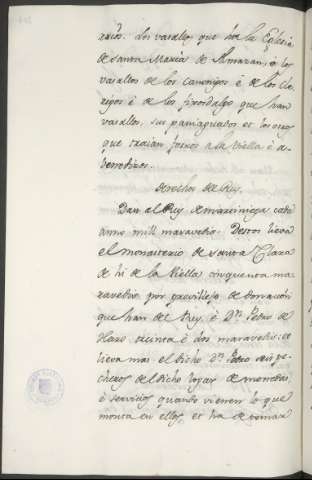 rário. Los vasallos que há la Eglesia
de Santa Maria de Almazan, o los
vasallos de los canonigos é de los Cle
rigos é de los fixosdalgo que han
vasallos, sus paniaguados et los otros
que traian fornos a la Viella é a-
venedizos.
Derechos del Rey.
Dan al Rey de martiniega cada
anno mill maravedis. Destos lieva
el monasterio de Santa Clara
de hi de la Viella cinquenta ma-
ravedis por previllejo de donacion
que han del Rey, é Dn. Pedro de
Haro treinta é dos maravedis: et
lieva mas el dicho Dn. Pedro seis pe-
cheros del dicho logar de monedas,
é servicios quando vienen lo que
monta en ellos, et ha de tomar